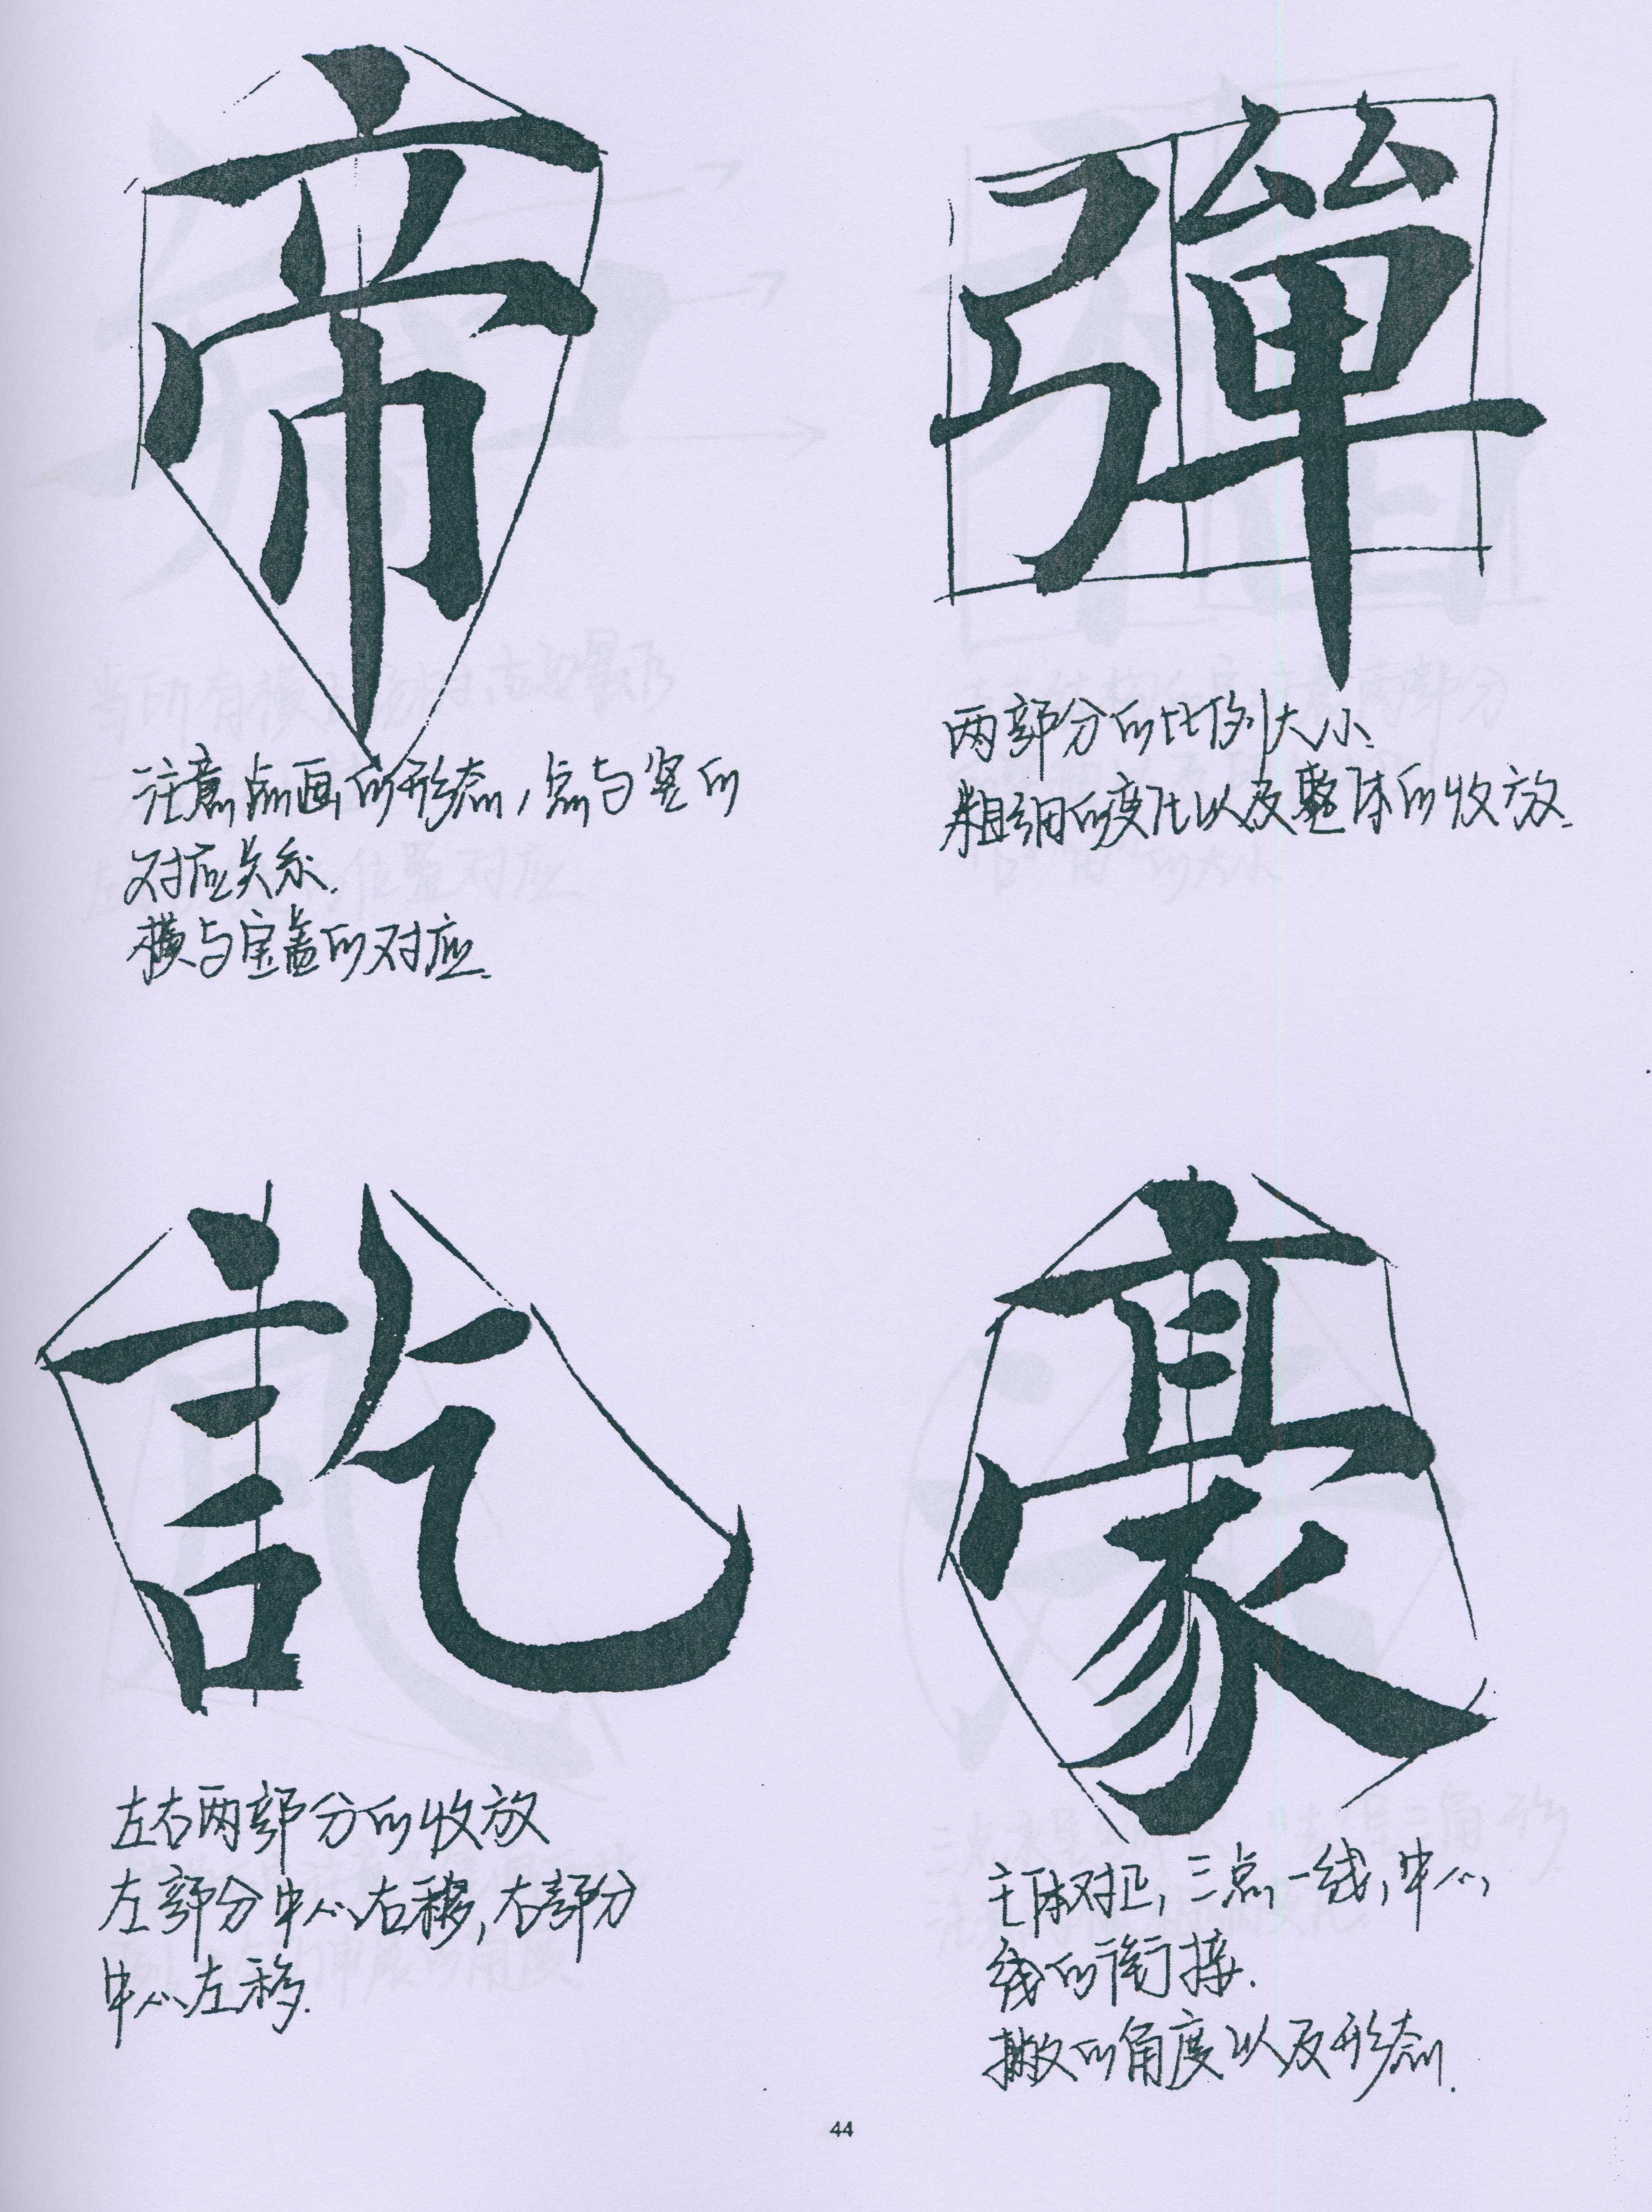 帝
注意点画的形态,点与竖的
对应关系.
横与宝盖的对应.
彈
两部分的比例大小.
粗细的变化以及整体的收放.
訖
左右两部分的收放
左部分中心右移,右部分
中心左移.
豪
主体对正,三点一线,中心
线的衔接.
撇的角度以及形态.
44